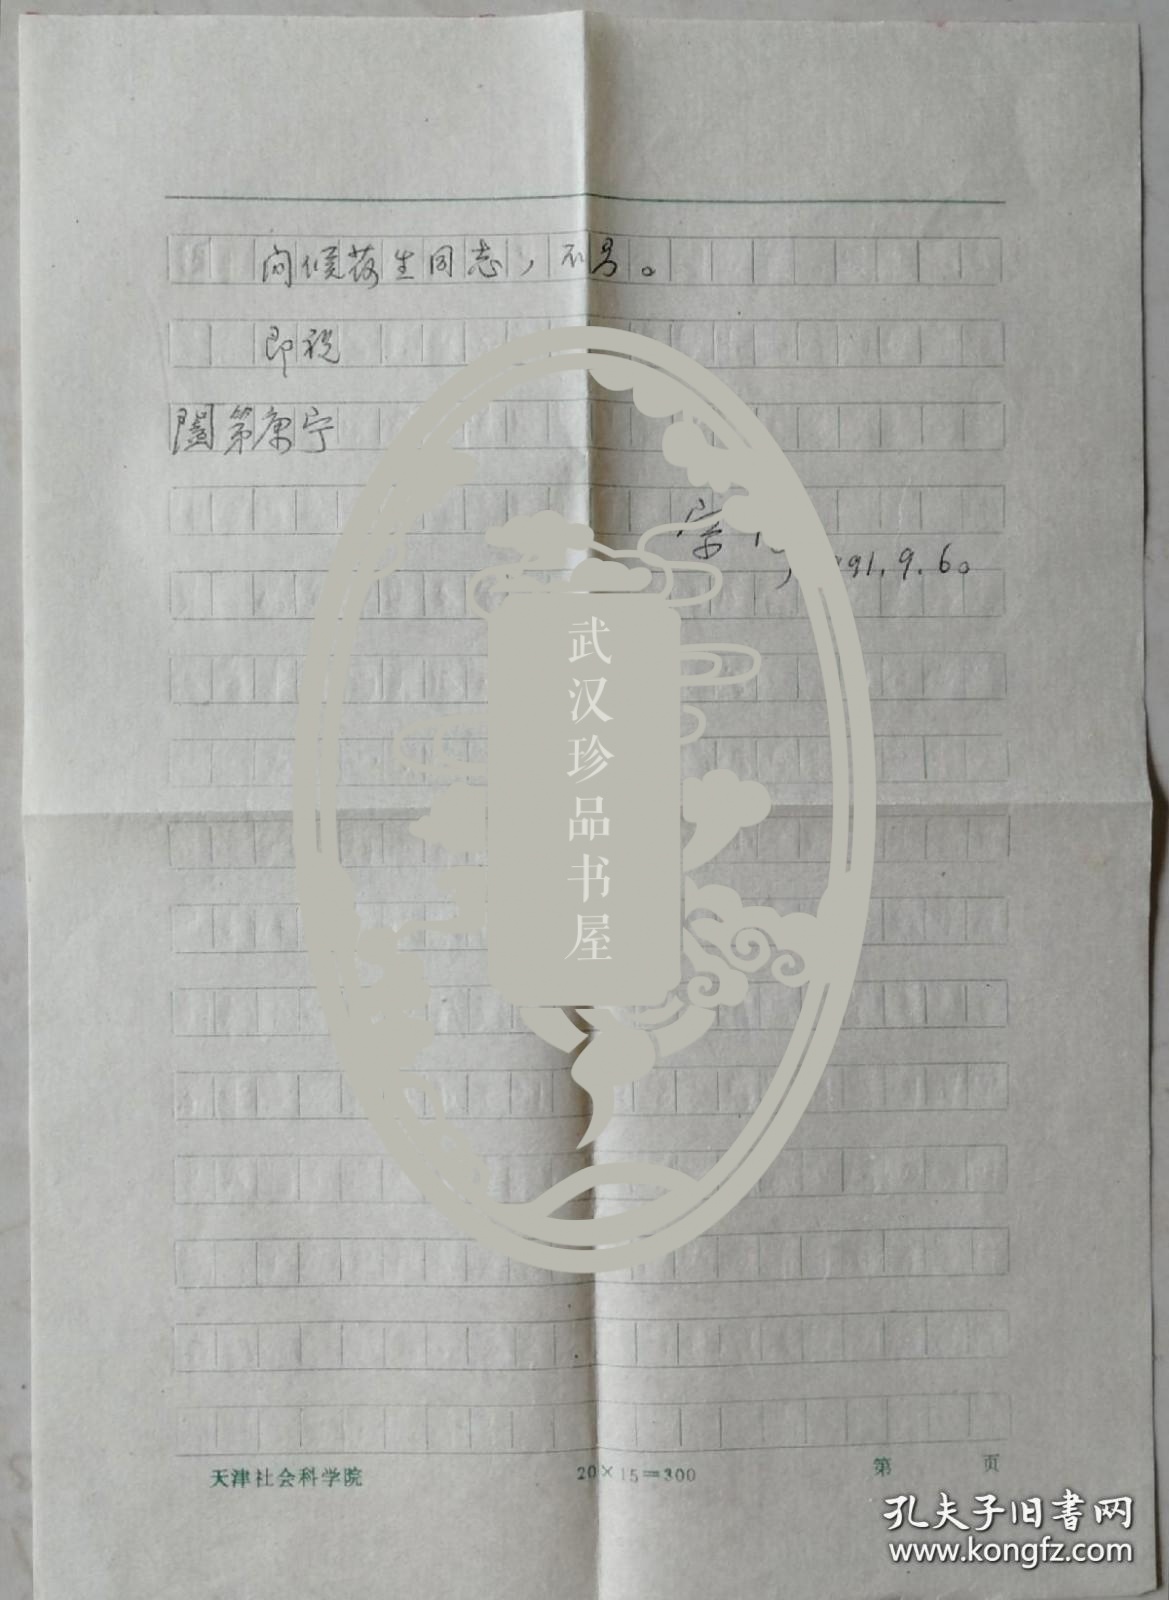 问候荻生同志，不另。
即祝
阖第康宁
宗
91.9.6。
武汉珍品书屋
天津社会科学院 20×15=300 第 页
孔夫子旧书网
www.kongfz.com